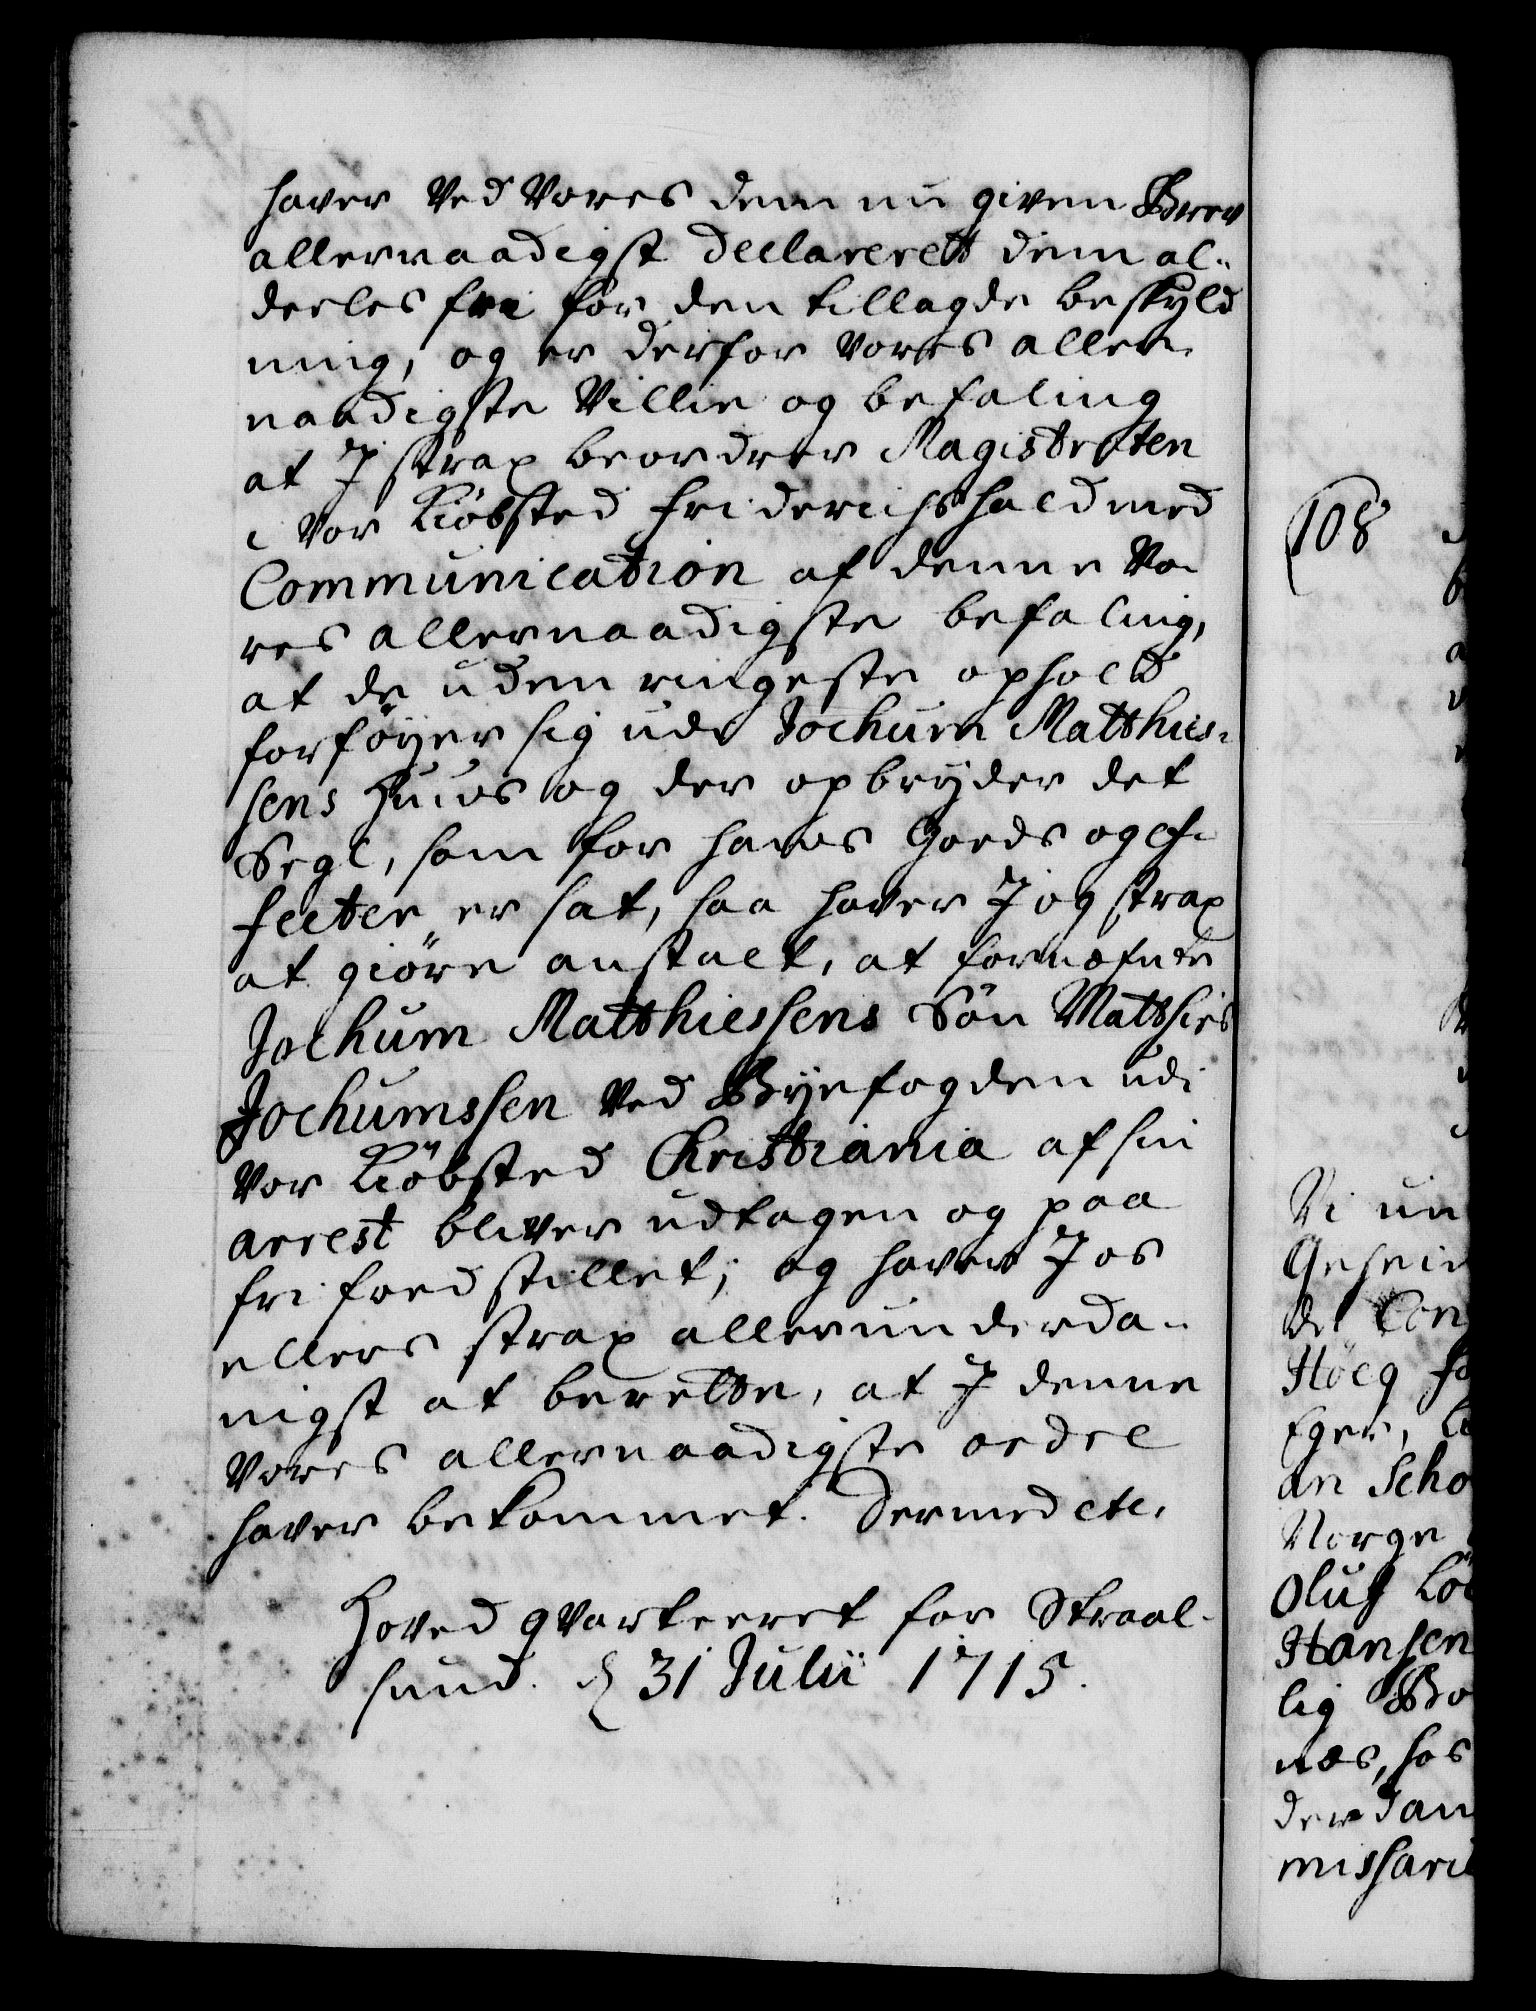 haver Ved Vores dem nu given Brev
allernaadigst declareret dem al„
deeles fri for den tillagde beskyld
ning, og er derfor Vores aller,
naadigste Villie og befaling
at J strax beordrer Magistraten
i Vor Kiöbsted Friderichshald med
Communication af denne Vo„
res allernaadigste befaling,
at de uden ringeste ophold
forföÿer sig udi Jochum Matthies„
sens Huus og der opbryder det
Segl, som for hans Goeds og Ef„
fecter er sat, saa haver J og strax
at giöre anstalt, at fornæfnte
Jochum Matthiessens Sön Matthies
Jochumssen Ved Byefogden udi
Vor Kiöbsted Christiania af sin
arrest bliver udtagen og paa
fri foed stillet; og haver J os
ellers strax allerunderda„
nigst at berette, at J denne
Vores allernaadigste ordre
haver bekommet. Dermed etc.
Hoved qvarteeret for Straal„
sund. d 31 Julii 1715.
108
Vi un
Geheim
de Con
Höeg fo
Eger, Li
an Scho
Norge
Oluf Lö
Hansen
lig Bo
næs, hos
der dan
missari